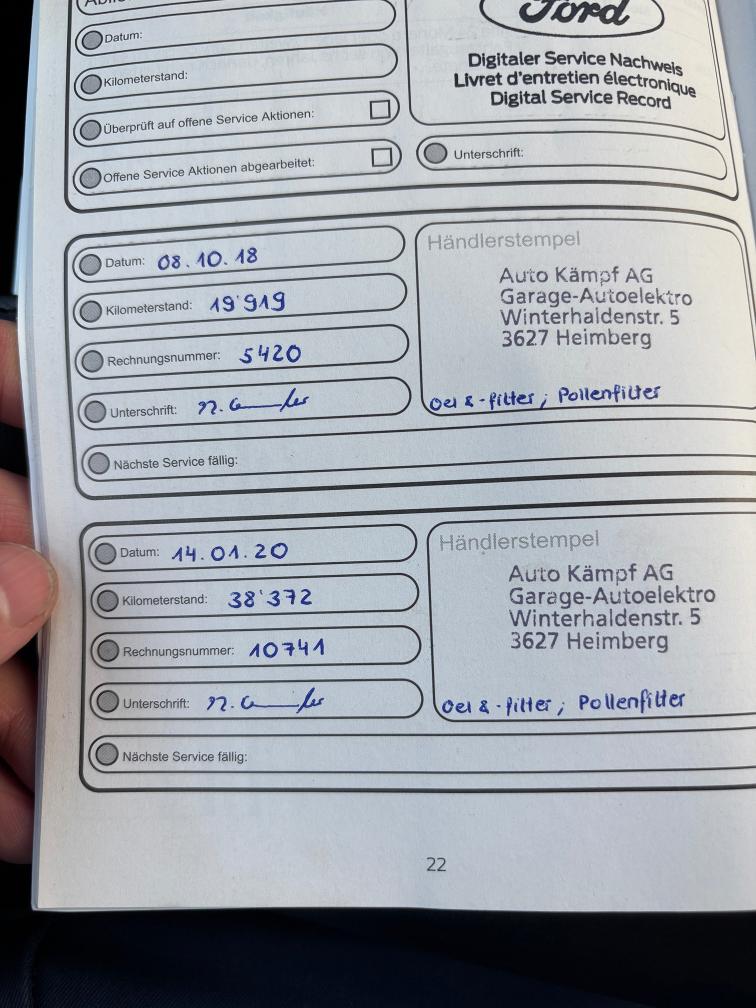 Datum:
Kilometerstand:
Überprüft auf offene Service Aktionen:
Offene Service Aktionen abgearbeitet:
Ford
Digitaler Service Nachweis
Livret d'entretien électronique
Digital Service Record
Unterschrift:
Datum: 08.10.18
Kilometerstand: 19'919
Rechnungsnummer: 5420
Unterschrift:
Nächste Service fällig:
Händlerstempel
Auto Kämpf AG
Garage-Autoelektro
Winterhaldenstr. 5
3627 Heimberg
Oel & -filter ; Pollenfilter
Datum: 14.01.20
Kilometerstand: 38'372
Rechnungsnummer: 10741
Unterschrift:
Nächste Service fällig:
Händlerstempel
Auto Kämpf AG
Garage-Autoelektro
Winterhaldenstr. 5
3627 Heimberg
Oel & -filter ; Pollenfilter
22